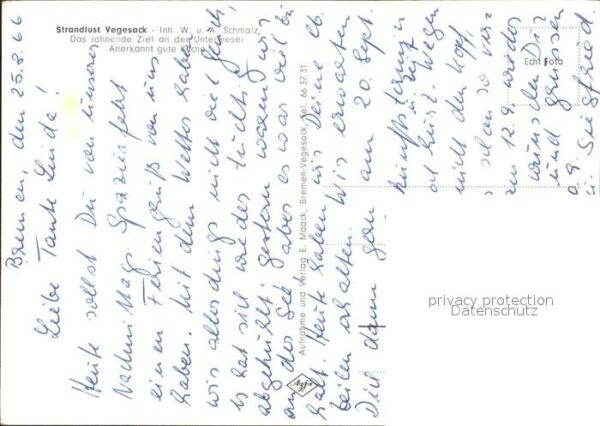 Strandlust Vegesack - Inh. W. u. A. Schmalz
Das lohnende Ziel an der Unterweser
Anerkannt gute Küche
Bremen, den 25.8.66
Liebe Tante Linda!
Heute sollst Du von unserem
Nachmittags Spazierfahrt
einen Feriengruß von uns
haben. Mit dem Wetter haben
wir allerdings nicht viel Glück,
es hat sich wieder tüchtig
abgekühlt. Gestern waren wir
an der See aber es war viel zu
kalt. Heute haben wir Deine lb.
Zeilen erhalten. Wir erwarten
Dich dann am 20. Sept.
nicht den Kopf,
zum 12.9. wieder
wünschen Dir
und grüssen
u. Siegfried.
Aufnahme und Verlag E. Maack, Bremen-Vegesack, Tel. 66 37 31
Agfa
Echt Foto
privacy protection
Datenschutz